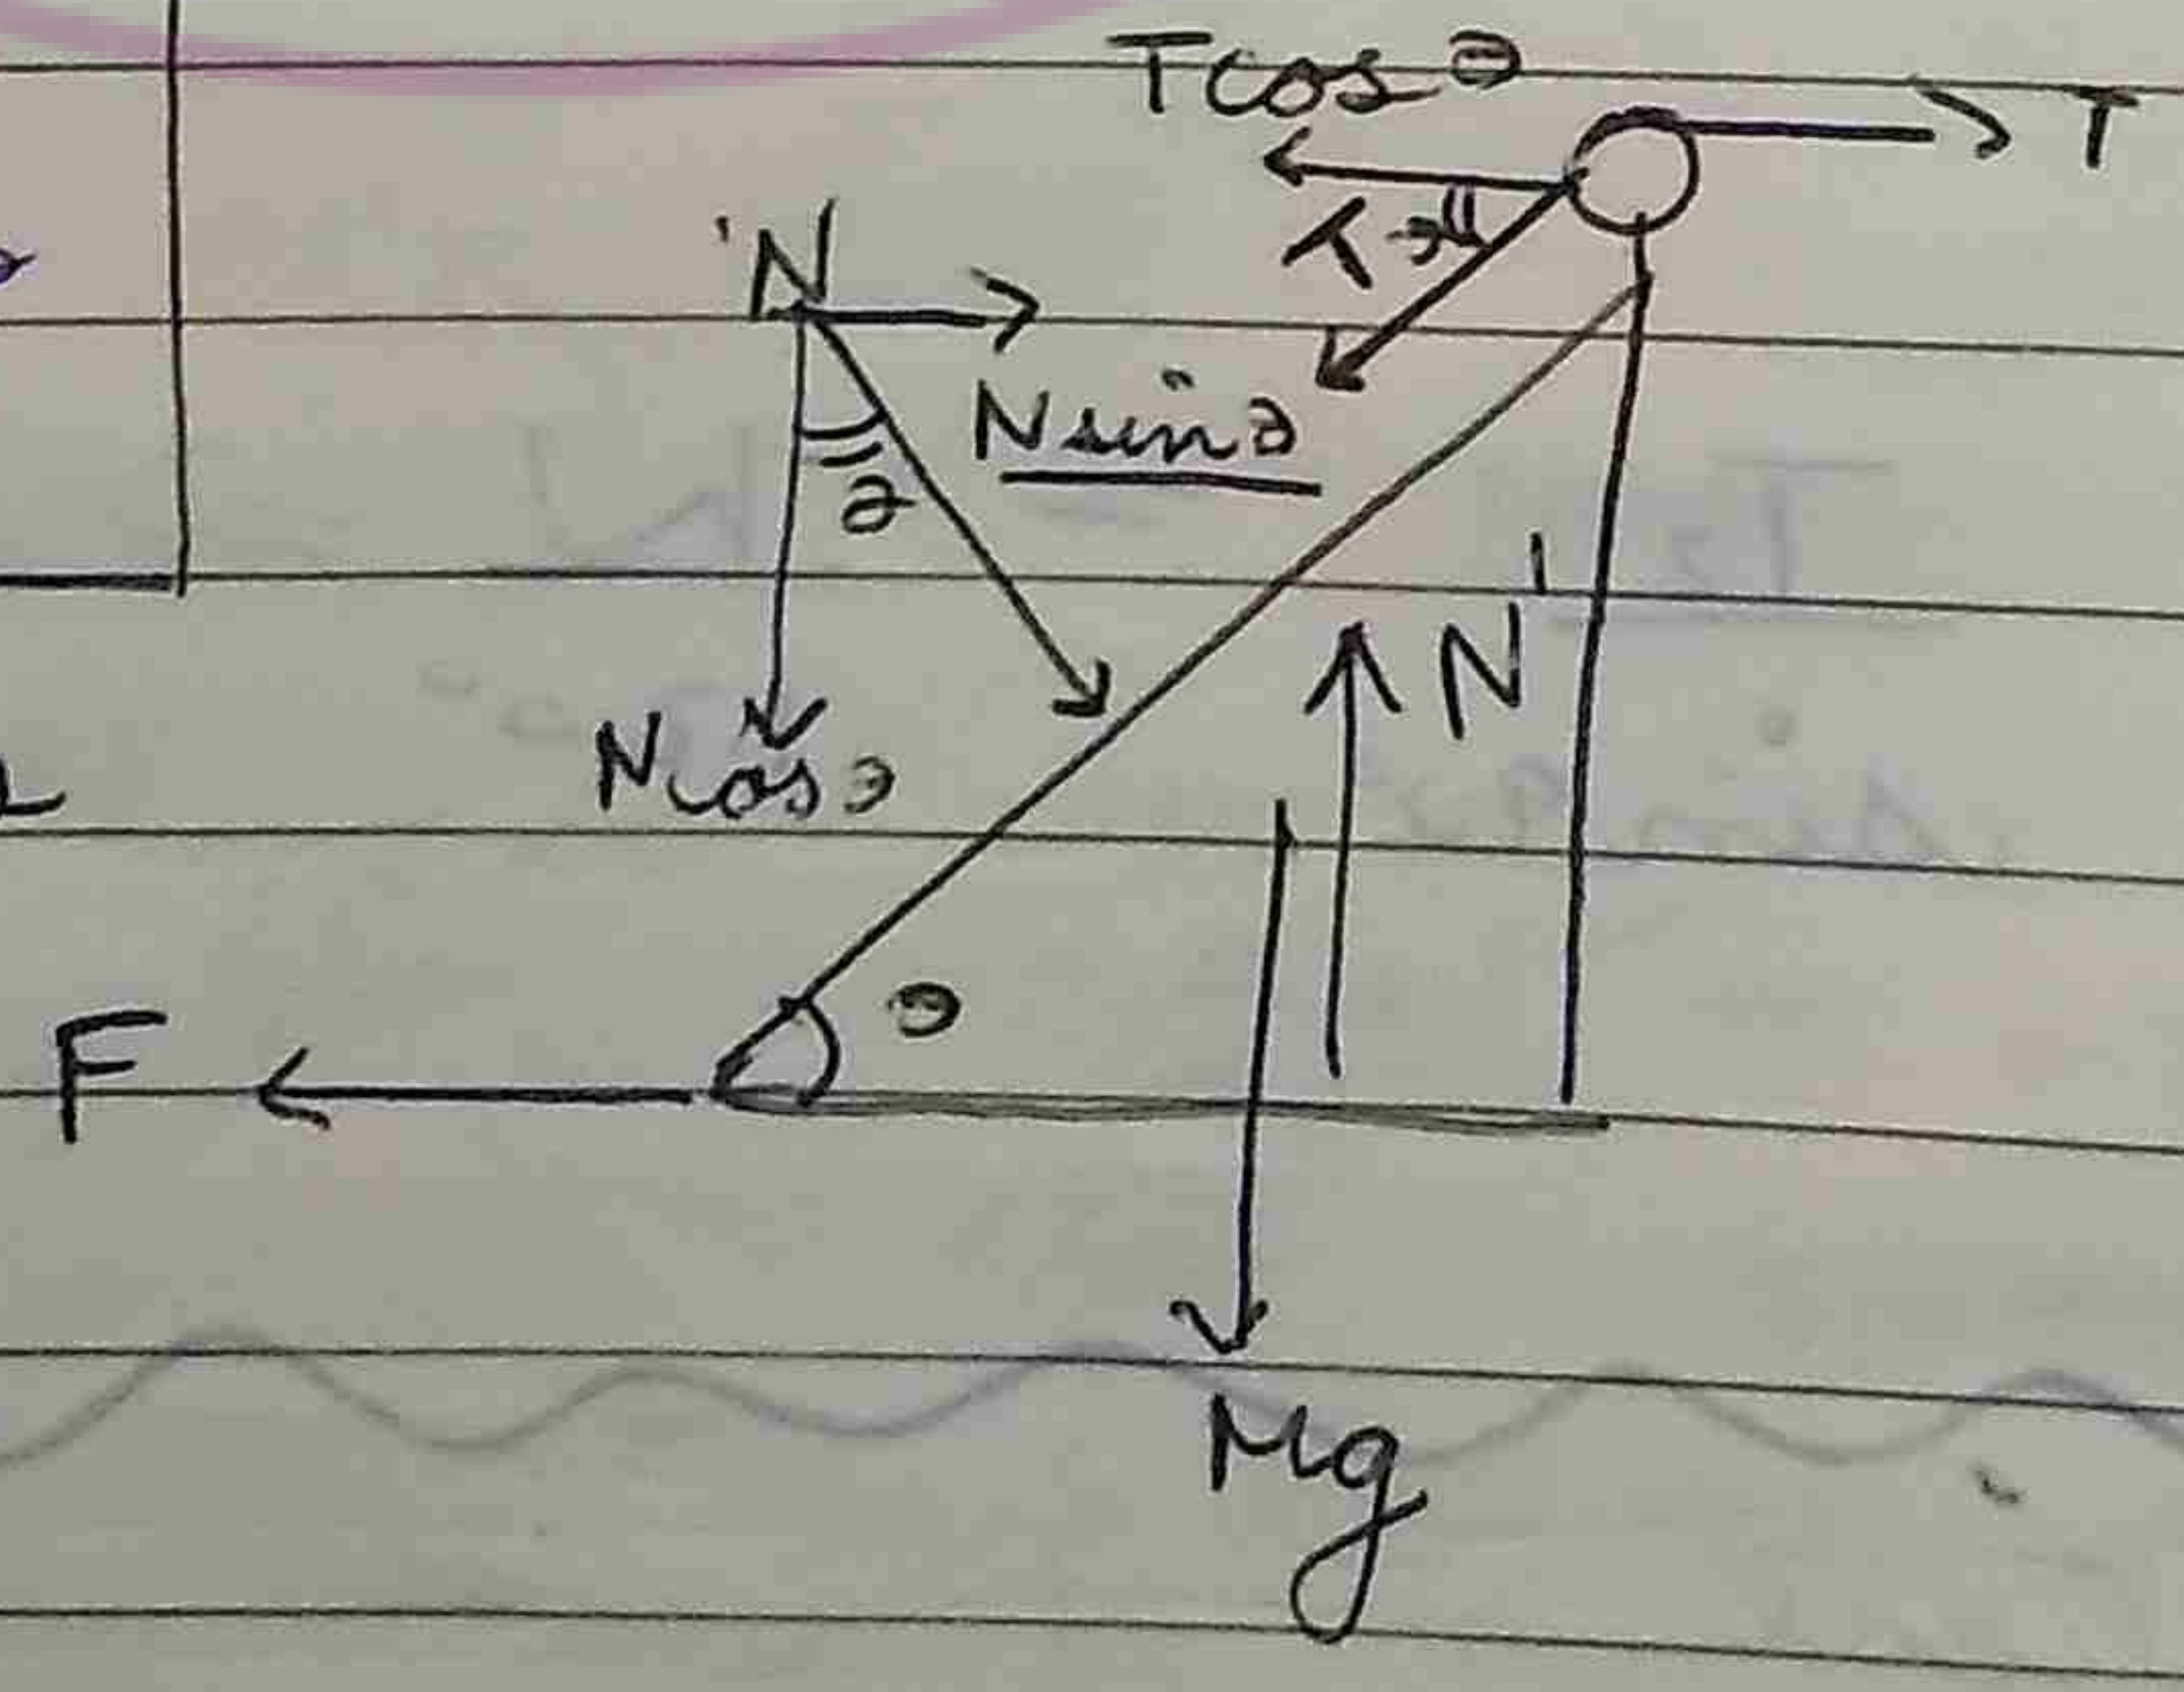 Tcos θ
T
T θ
N
N sin θ
θ
N'
N cos θ
θ
F
Mg